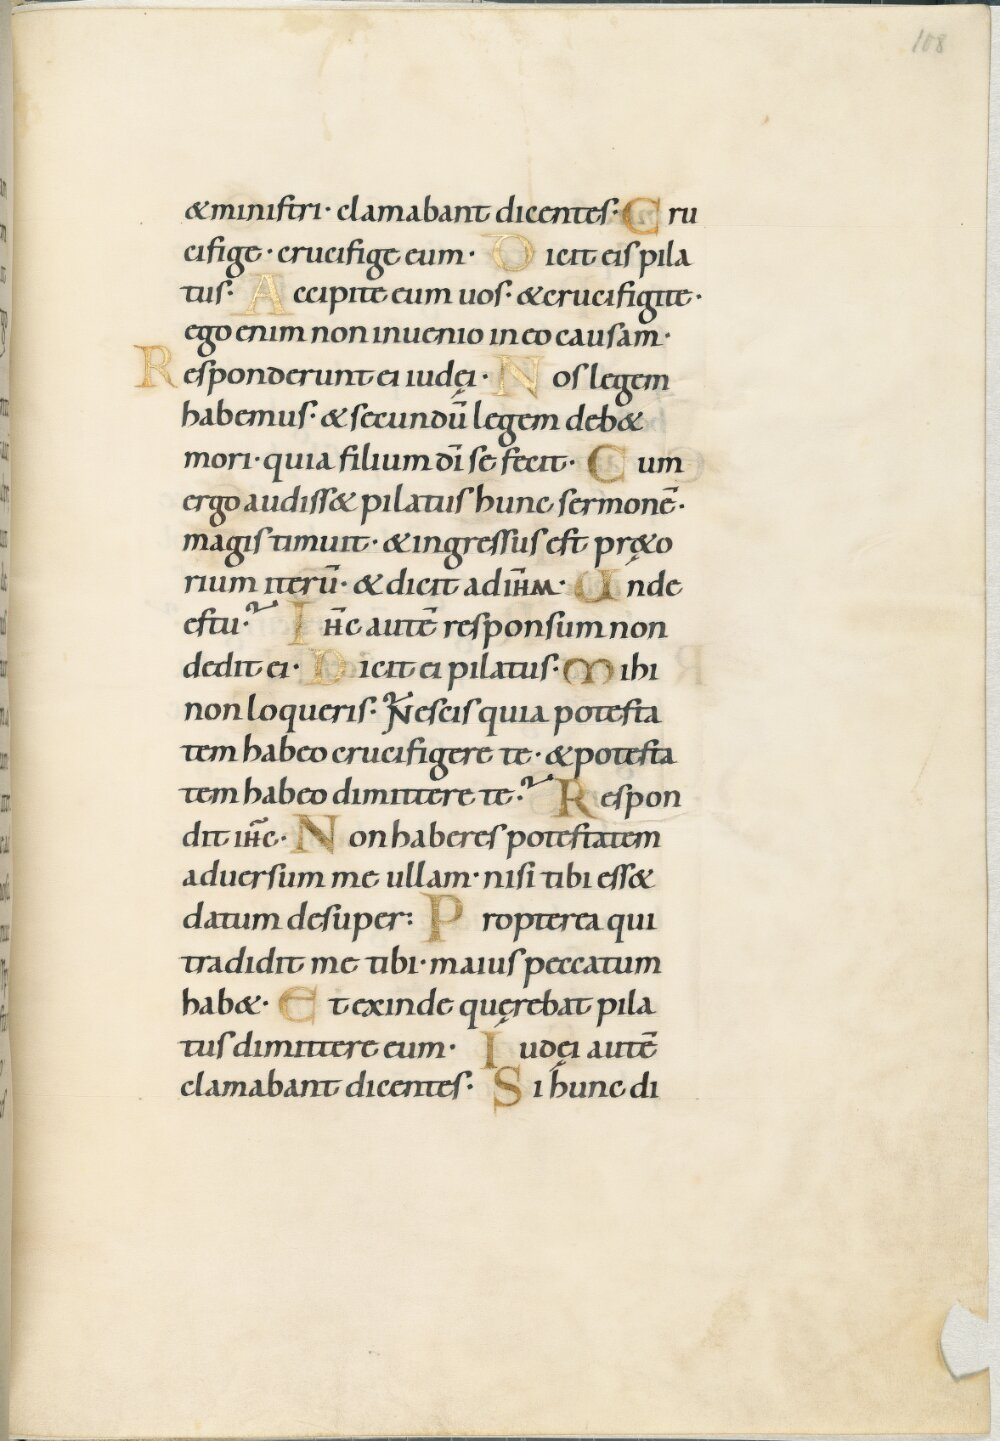 108
& ministri· clamabant dicentes·Cru
cifige· crucifige eum· Dicit eis pila
tus· Accipite eum uos· & crucifigite·
ego enim non inuenio in eo causam·
Responderunt ei iudęi· Nos legem
habemus· & secundū legem deb&
mori· quia filium dī se fecit· Cum
ergo audiss& pilatus hunc sermonē·
magis timuit· & ingressus est pr&̨o
rium iterū· & dicit ad ih̄m· Unde
es tu·? ih̄c autē responsum non
dedit ei· Dicit ei pilatus· mihi
non loqueris·? Nescis quia potesta
tem habeo crucifigere te· & potesta
tem habeo dimittere te·? Respon
dit ih̄c· Non haberes potestatem
adversum me ullam· nisi tibi ess&
datum desuper: Propterea qui
tradidit me tibi· maius peccatum
hab&· Et exinde quęrebat pila
tus dimittere eum· Iudęi autē
clamabant dicentes· Si hunc di